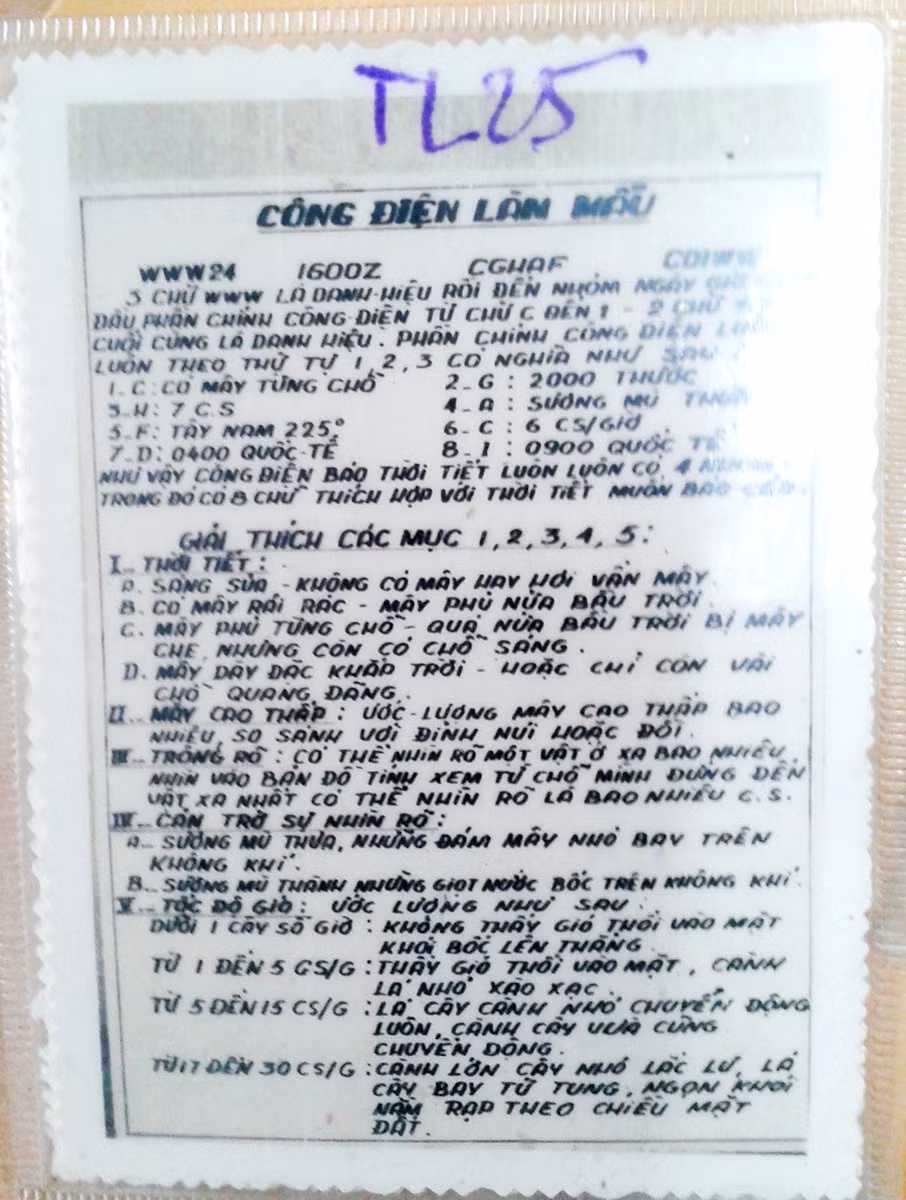 TL25
CÔNG ĐIỆN LÀM MẪU
WWW24 1600Z CGHAF CDIWW
3 CHỮ WWW LÀ DANH HIỆU RỒI ĐẾN NHÓM NGÀY GIỜ
ĐẦU PHẦN CHÍNH CÔNG ĐIỆN TỪ CHỮ C ĐẾN I - 2 CHỮ
CUỐI CÙNG LÀ DANH HIỆU. PHẦN CHÍNH CÔNG ĐIỆN
LUÔN THEO THỨ TỰ 1, 2, 3 CÓ NGHĨA NHƯ SAU
1. C: CÓ MÂY TỪNG CHỖ 2_ G : 2000 THƯỚC
3_ H: 7 C.S 4_ A : SƯƠNG MÙ
5_ F: TÂY NAM 225° 6_ C : 6 CS/GIỜ
7_ D: 0400 QUỐC TẾ 8_ I : 0900 QUỐC TẾ
NHƯ VẬY CÔNG ĐIỆN BÁO THỜI TIẾT LUÔN LUÔN CÓ 4
TRONG ĐÓ CÓ 8 CHỮ THÍCH HỢP VỚI THỜI TIẾT MUỐN BÁO
GIẢI THÍCH CÁC MỤC 1, 2, 3, 4, 5:
I_ THỜI TIẾT :
A. SÁNG SỦA - KHÔNG CÓ MÂY HAY HƠI VẨN MÂY
B. CÓ MÂY RẢI RÁC - MÂY PHỦ NỬA BẦU TRỜI.
C. MÂY PHỦ TỪNG CHỖ - QUÁ NỬA BẦU TRỜI BỊ MÂY
CHE, NHƯNG CÒN CÓ CHỖ SÁNG.
D. MÂY DÀY ĐẶC KHẮP TRỜI - HOẶC CHỈ CÒN VÀI
CHỖ QUANG ĐÃNG.
II_ MÂY CAO THẤP : ƯỚC LƯỢNG MÂY CAO THẤP BAO
NHIÊU, SO SÁNH VỚI ĐỈNH NÚI HOẶC ĐỒI.
III_ TRÔNG RÕ : CÓ THỂ NHÌN RÕ MỘT VẬT Ở XA BAO NHIÊU,
NHÌN VÀO BẢN ĐỒ TÍNH XEM TỪ CHỖ MÌNH ĐỨNG ĐẾN
VẬT XA NHẤT CÓ THỂ NHÌN RÕ LÀ BAO NHIÊU C.S.
IV_ CẢN TRỞ SỰ NHÌN RÕ:
A_ SƯƠNG MÙ THƯA, NHỮNG ĐÁM MÂY NHỎ BAY TRÊN
KHÔNG KHÍ.
B_ SƯƠNG MÙ THÀNH NHỮNG GIỌT NƯỚC BỐC TRÊN KHÔNG KHÍ.
V_ TỐC ĐỘ GIÓ: ƯỚC LƯỢNG NHƯ SAU :
DƯỚI 1 CÂY SỐ GIỜ : KHÔNG THẤY GIÓ THỔI VÀO MẶT
KHÓI BỐC LÊN THẲNG
TỪ 1 ĐẾN 5 CS/G : THẤY GIÓ THỔI VÀO MẶT, CÀNH
LÁ NHỎ XÀO XẠC
TỪ 5 ĐẾN 15 CS/G : LÁ CÂY CÀNH NHỎ CHUYỂN ĐỘNG
LUÔN, CÀNH CÂY VỪA CŨNG
CHUYỂN ĐỘNG.
TỪ 17 ĐẾN 30 CS/G : CÀNH LỚN CÂY NHỎ LẮC LƯ, LÁ
CÂY BAY TỨ TUNG, NGỌN KHÓI
NẰM RẠP THEO CHIỀU MẶT
ĐẤT.